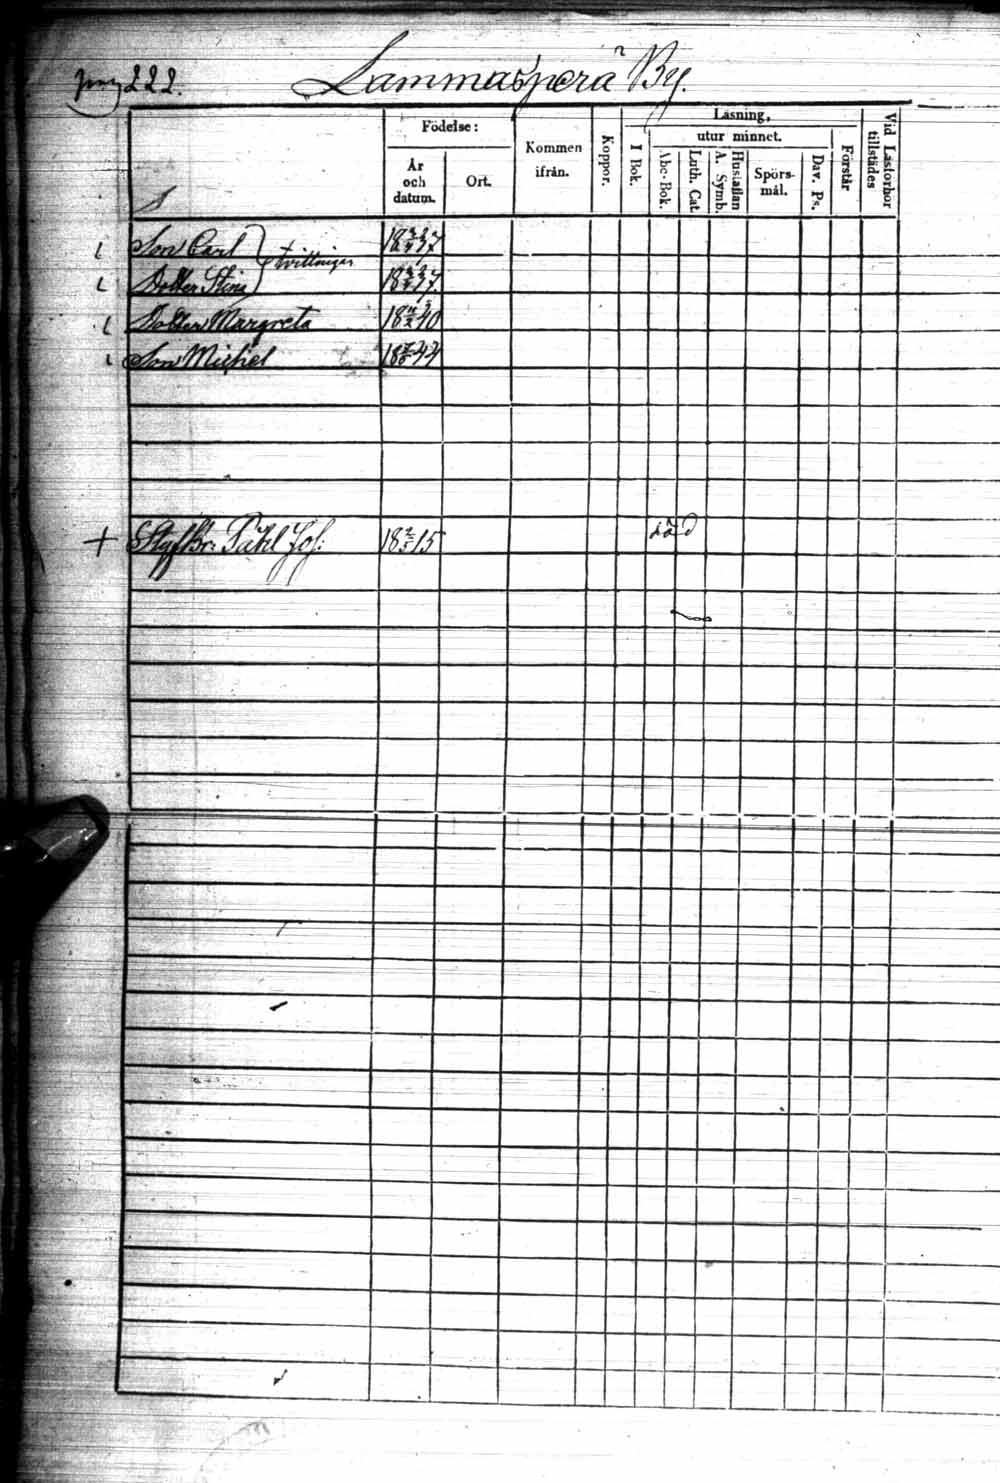 pag 222.
Lammasperä By.
Födelse:
År och datum.
Ort.
Kommen ifrån.
Koppor.
Läsning,
I Bok.
utur minnet.
Abc-Bok.
Luth. Cat.
Hustaflan A. Symb.
Spörs-mål.
Dav. Ps.
Förstår
Vid Läsförhör tillstädes
Son Carl 37
tvillingar
Dotter Stina 37
Dotter Margreta 40
Son Michel 44
+ Styfbr: Påhl Jos: 15 död